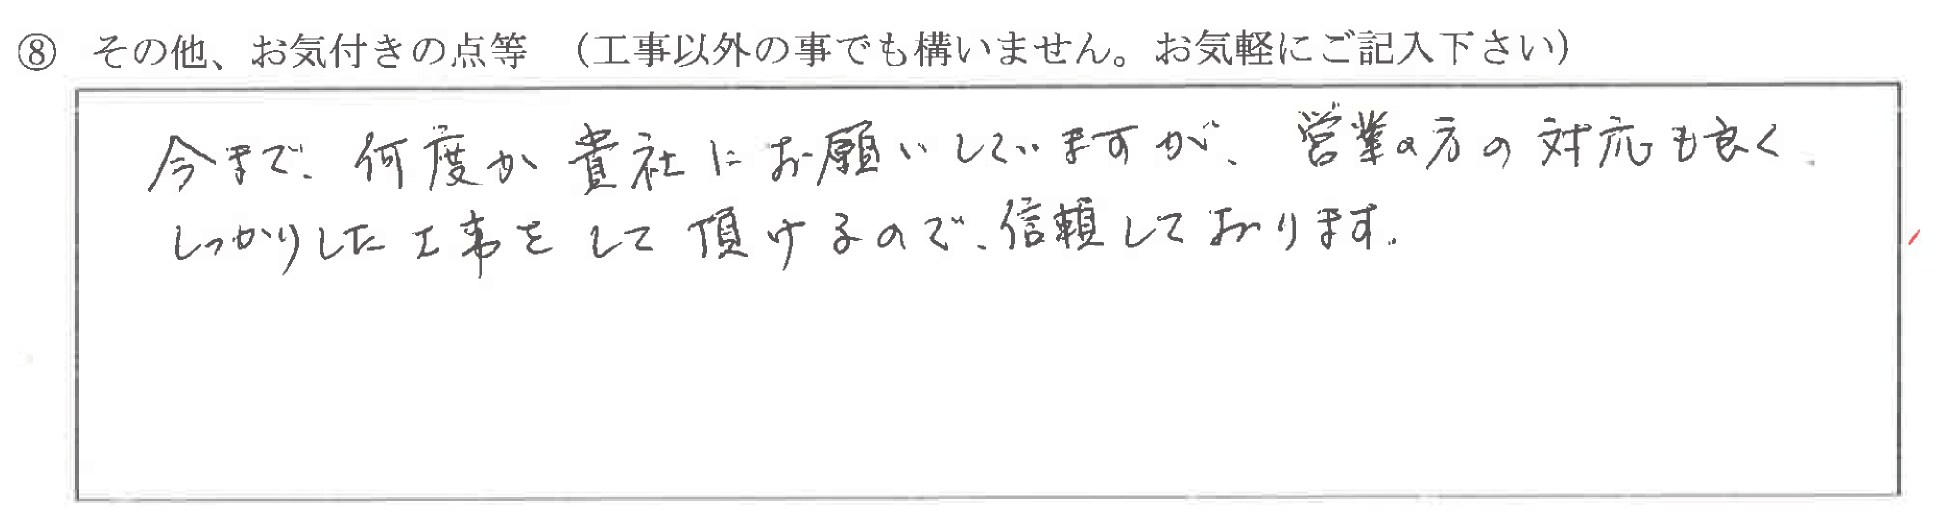 ⑧ その他、お気付きの点等 （工事以外の事でも構いません。お気軽にご記入下さい）
今まで、何度か貴社にお願いしていますが、営業の方の対応も良く、
しっかりした工事をして頂けるので、信頼しております。